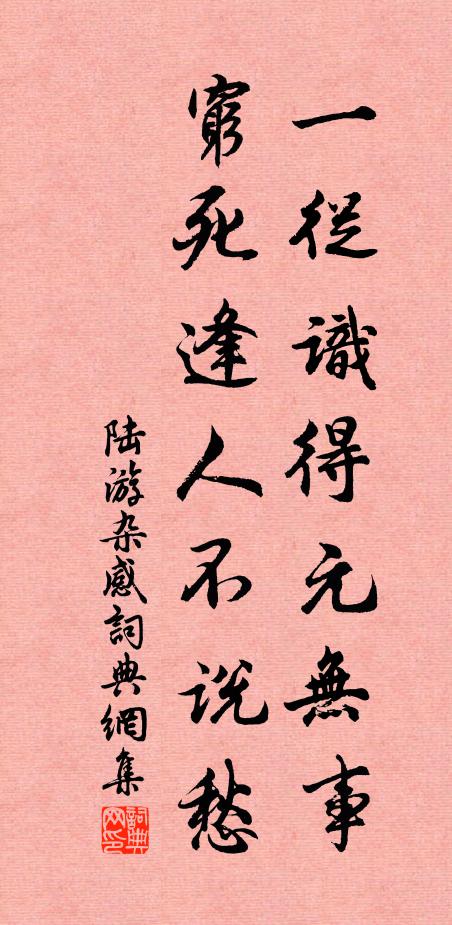 一從識得元無事
窮死逢人不説愁
陆游杂感詞典網集
詞典网印